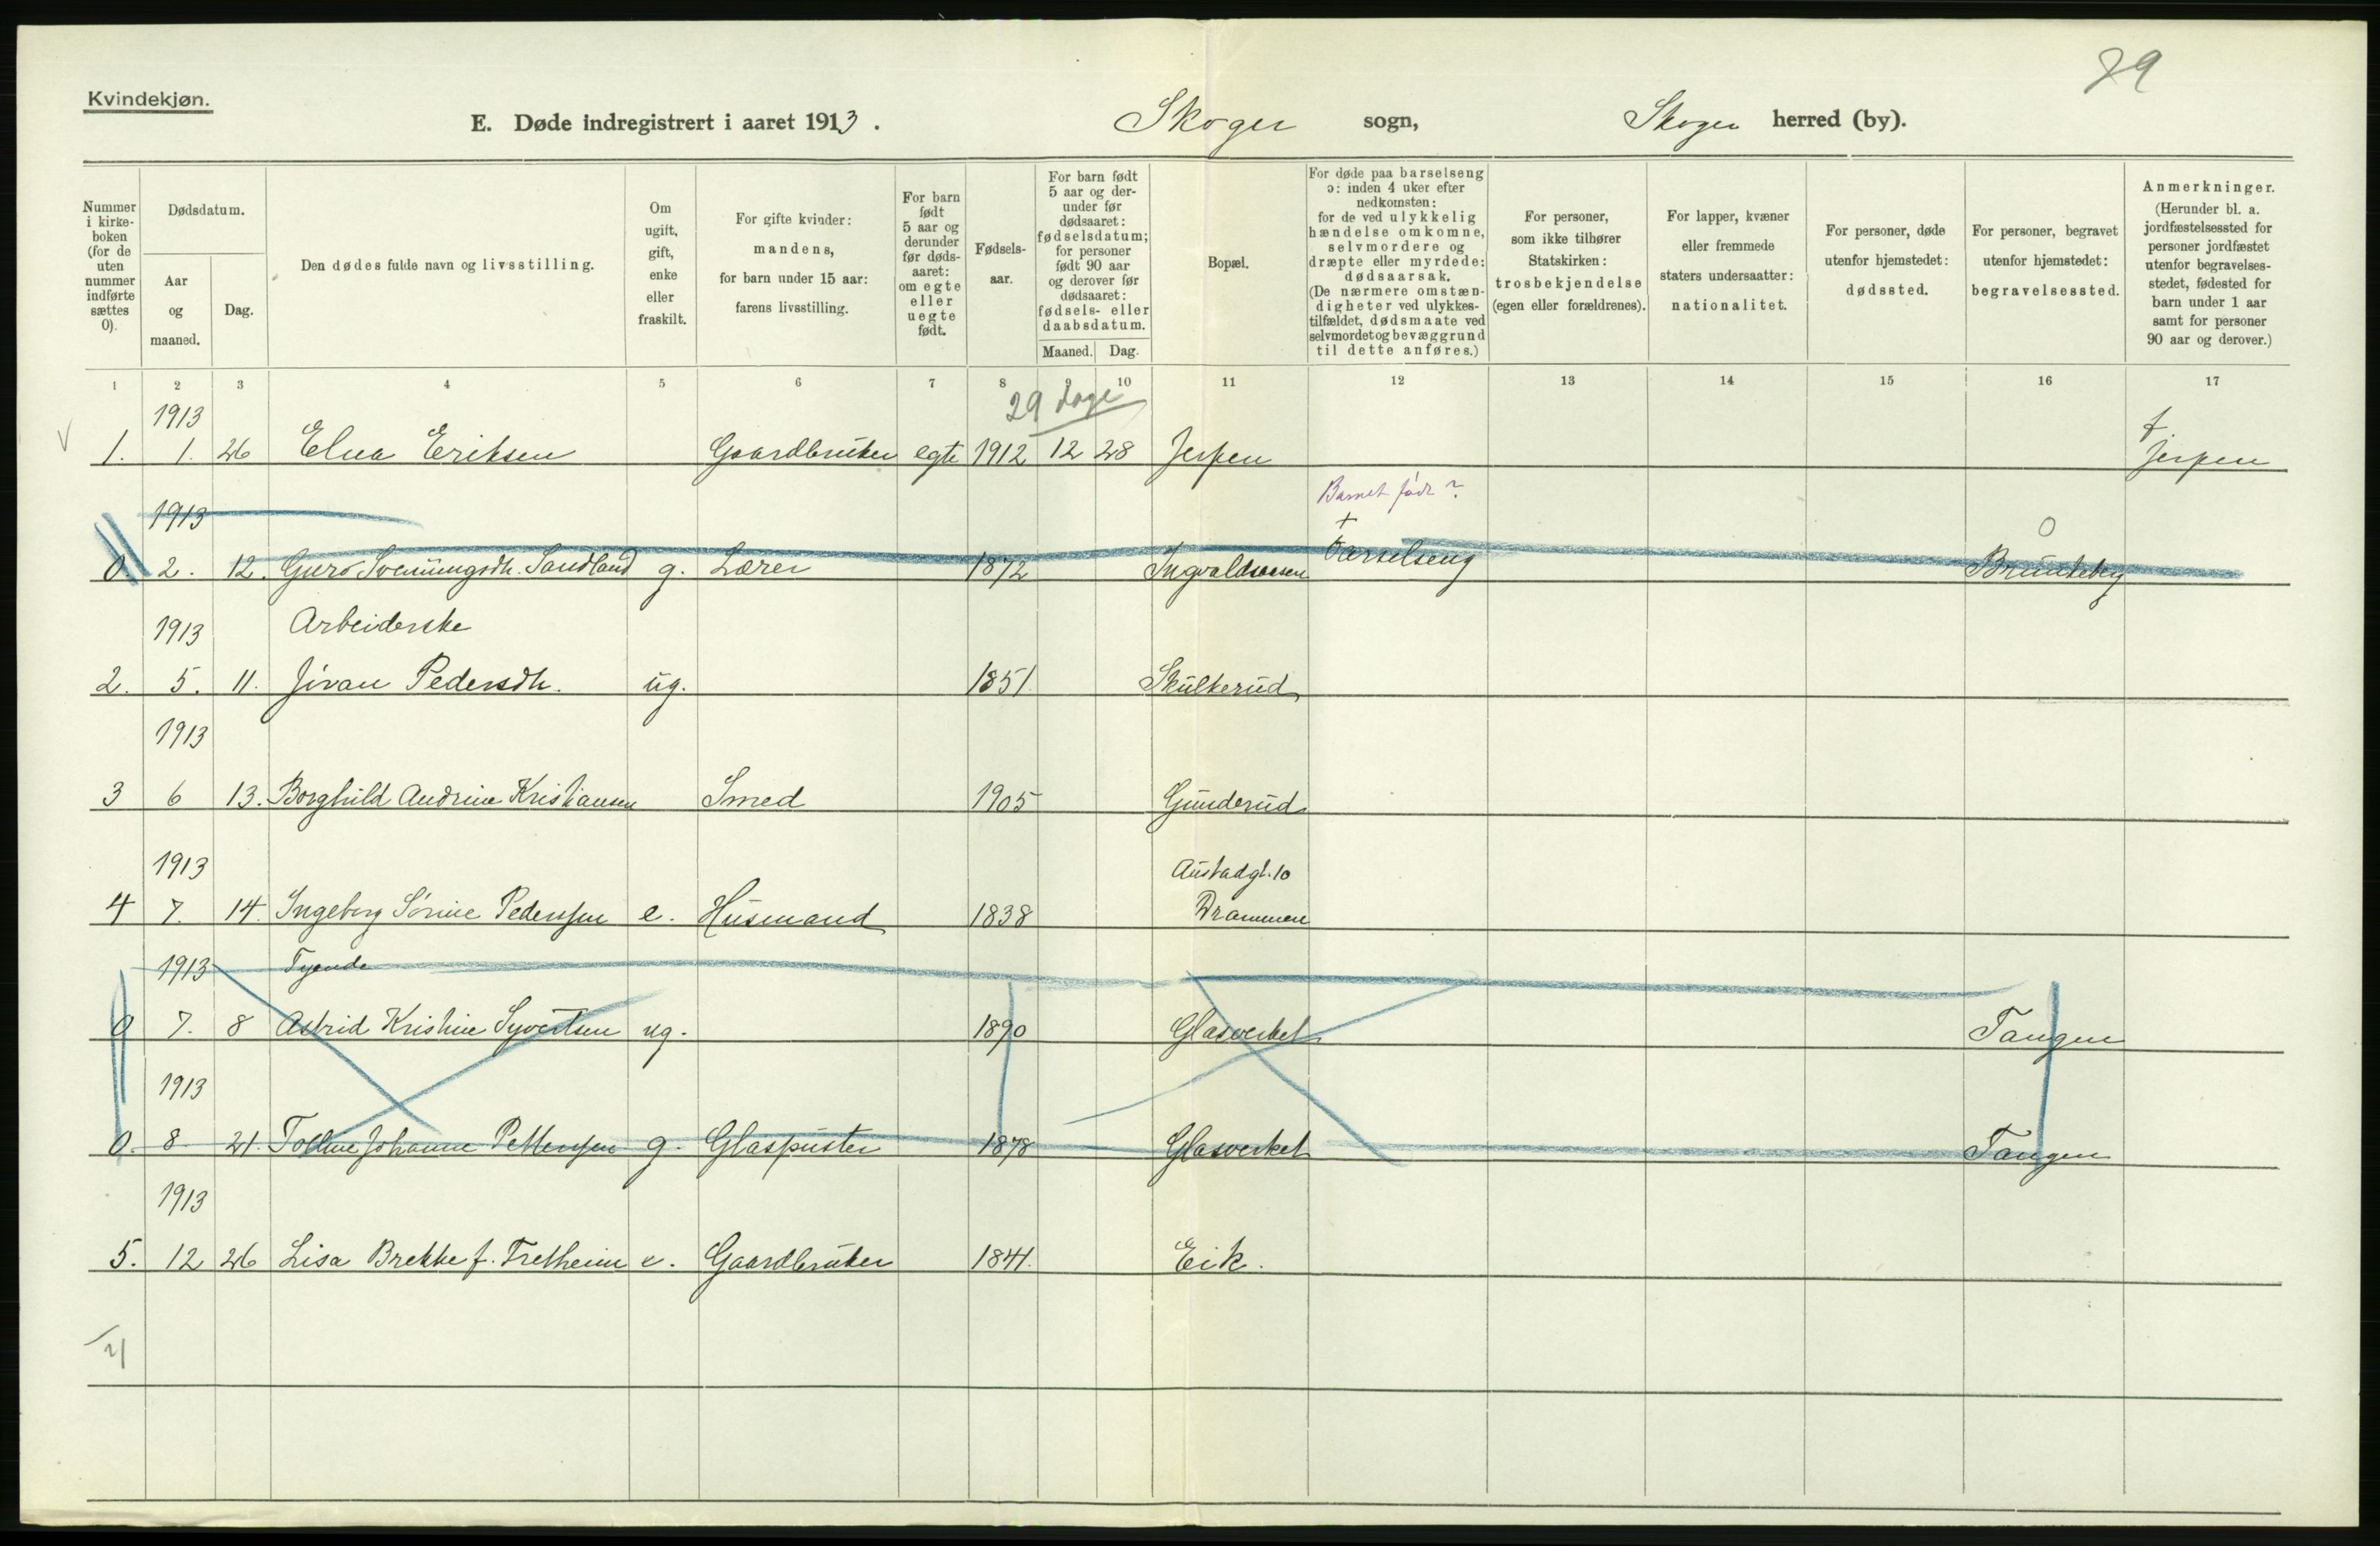 89
Kvindekjøn.
E. Døde indregistrert i aaret 1913. Skoger sogn, Skoger herred (by).
Nummer i kirke-boken (for de uten nummer indførte sættes 0).
Dødsdatum.
Aar og maaned.
Dag.
Den dødes fulde navn og livsstilling.
Om ugift, gift, enke eller fraskilt.
For gifte kvinder: mandens, for barn under 15 aar: farens livsstilling.
For barn født 5 aar og derunder før døds-aaret: om egte eller uegte født.
Fødsels-aar.
For barn født 5 aar og der-under før dødsaaret: fødselsdatum; for personer født 90 aar og derover før dødsaaret: fødsels- eller daabsdatum.
Maaned. Dag.
Bopæl.
For døde paa barselseng ɔ: inden 4 uker efter nedkomsten: for de ved ulykkelig hændelse omkomne, selvmordere og dræpte eller myrdede: dødsaarsak. (De nærmere omstæn-digheter ved ulykkes-tilfældet, dødsmaate ved selvmordet og bevæggrund til dette anføres.)
For personer, som ikke tilhører Statskirken: trosbekjendelse (egen eller forældrenes).
For lapper, kvæner eller fremmede staters undersaatter: nationalitet.
For personer, døde utenfor hjemstedet: dødssted.
For personer, begravet utenfor hjemstedet: begravelsessted.
Anmerkninger. (Herunder bl. a. jordfæstelsessted for personer jordfæstet utenfor begravelses-stedet, fødested for barn under 1 aar samt for personer 90 aar og derover.)
1 2 3 4 5 6 7 8 9 10 11 12 13 14 15 16 17
1913 29 dage f.
1. 1. 26 Elna Eriksen Gaardbruker egte 1912 12 28 Jerpen Jerpen
1913 Barnet født?
0 2. 12. Guro Svenningsdh. Sandland g. Lærer 1872 Ingvaldsaasen Barselseng Brunkeberg
1913 Arbeiderske
2. 5. 11. Jøran Pedersdh. ug. 1851. Skulkerud
1913
3 6 13. Borghild Andrine Kristiansen Smed 1905 Gunderud
1913 Austadgt. 10
4 7. 14. Ingeborg Sørine Pedersen e. Husmand 1838 Drammen
1913 Tyende
0 7. 8 Astrid Kristine Syvertsen ug. 1890 Glasverket Tangen
1913
0. 8. 21. Johanne Pettersen g. Glaspuster 1878 Glasverket Tangen
1913
5. 12 26 Lisa Brekke f. Tretheim e. Gaardbruker 1841. Eik.